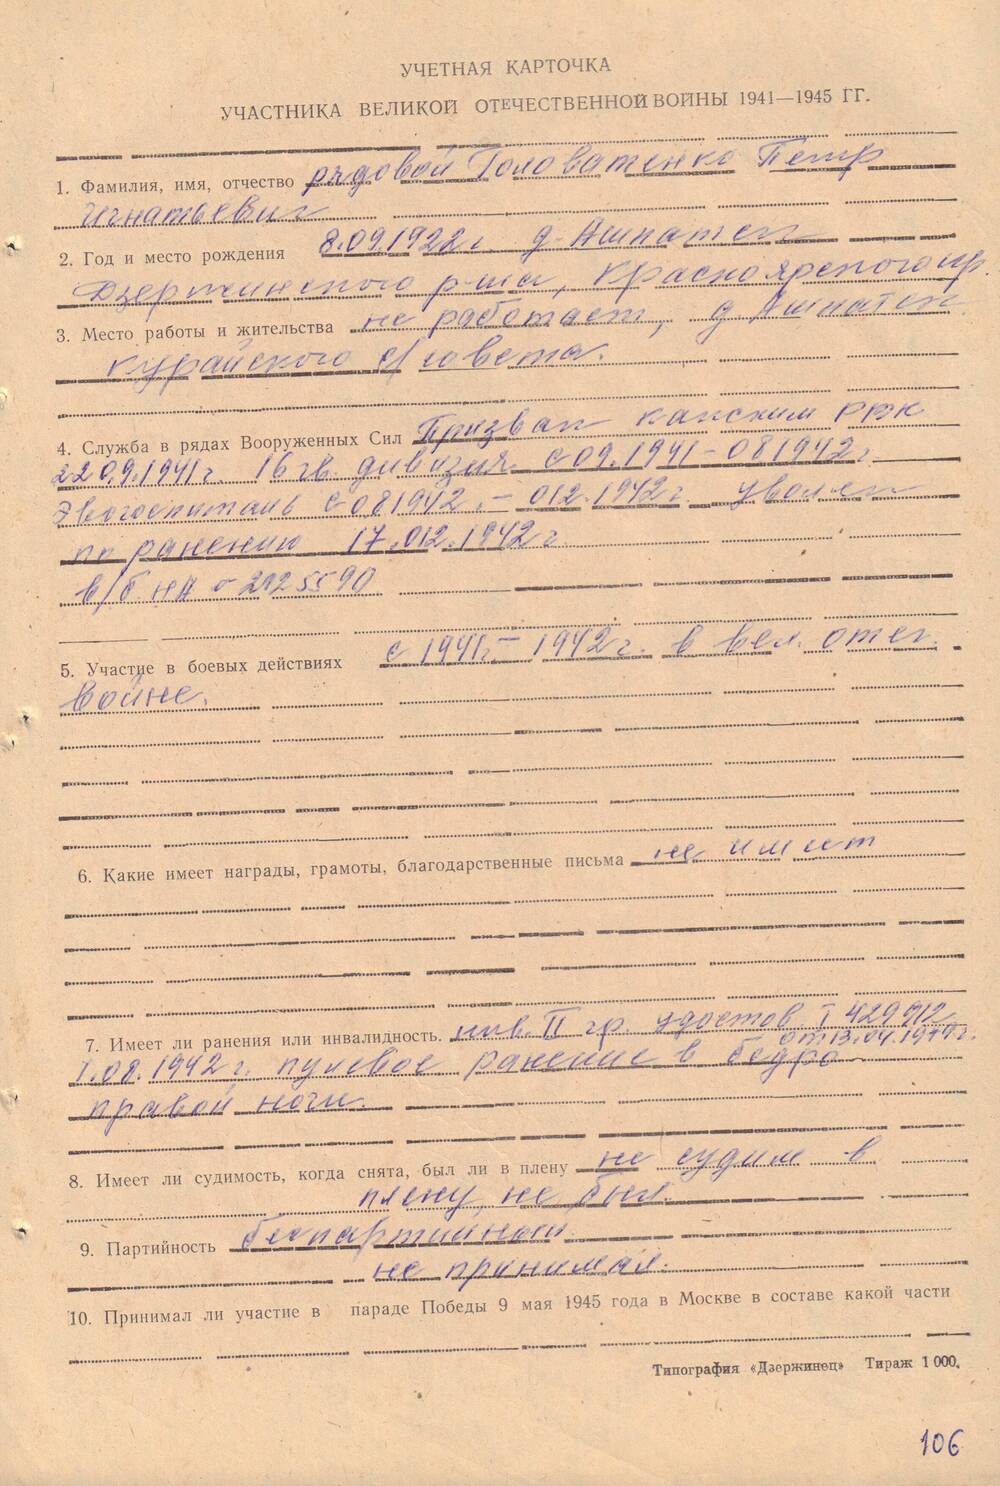 УЧЕТНАЯ КАРТОЧКА
УЧАСТНИКА ВЕЛИКОЙ ОТЕЧЕСТВЕННОЙ ВОЙНЫ 1941—1945 ГГ.
1. Фамилия, имя, отчество рядовой Головатенко Петр
Игнатьевич
2. Год и место рождения 8.09.1922г. д. Ашпатск
Дзержинского р-на, Красноярского кр.
3. Место работы и жительства не работает, д. Ашпатск
Курайского с/совета.
4. Служба в рядах Вооруженных Сил Призван Канским РВК
22.09.1941г. 16 гв. дивизия с 09.1941-081942г
Эвогоспиталь с 081942.- 012.1942г. уволен
по ранению 17.012.1942г.
в/б НД 2125590
5. Участие в боевых действиях с 1941г.- 1942г. в вел. отеч.
войне.
6. Какие имеет награды, грамоты, благодарственные письма не имеет
7. Имеет ли ранения или инвалидность. инв. II гр. удостов. I 429912
от 13.04.
1.08.1942г. пулевое ранение в бедро
правой ноги.
8. Имеет ли судимость, когда снята, был ли в плену не судим в
плену не был.
9. Партийность беспартийный
не принимал.
10. Принимал ли участие в параде Победы 9 мая 1945 года в Москве в составе какой части
Типография «Дзержинец» Тираж 1 000.
106